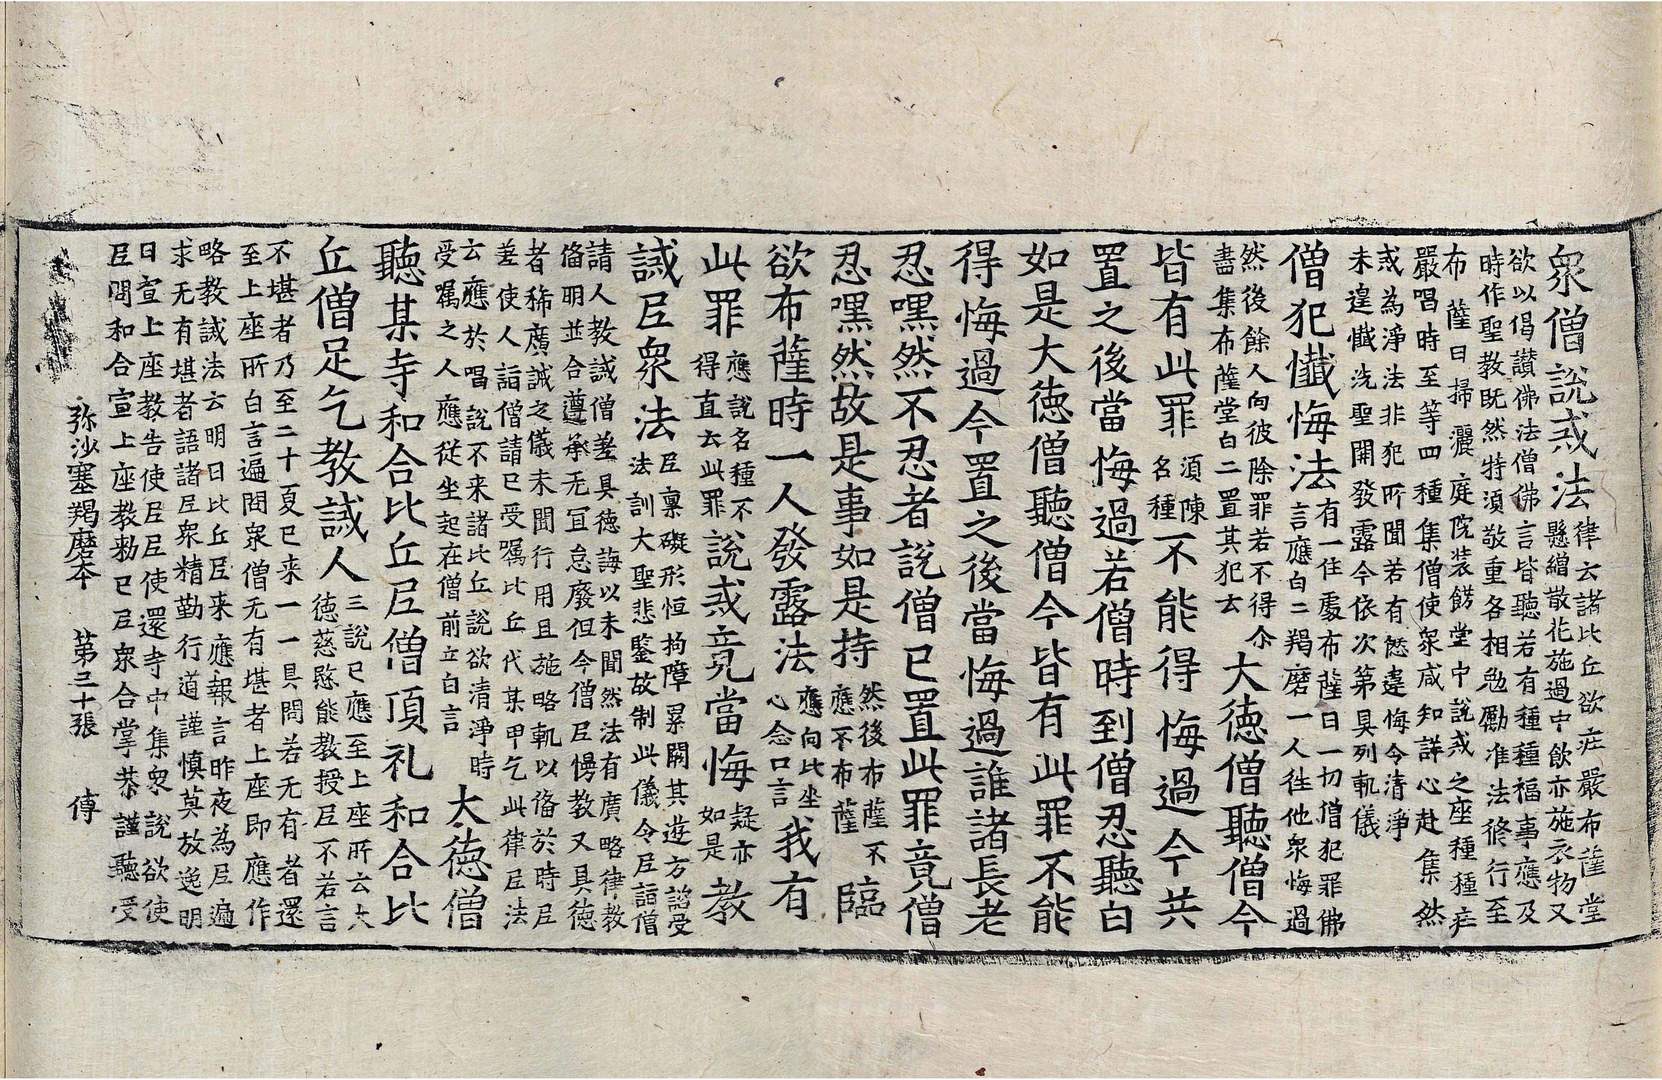 眾僧說戒法律云諸比丘欲莊嚴布薩堂
懸繒散花施過中飲亦施衣物又
欲以偈讚佛法僧佛言皆聽若有種種福事應及
時作聖教既然特須敬重各相勉勵准法條行至
布薩日掃灑庭院裝餝堂中說戒之座種種疟
嚴唱時至等四種集僧使眾咸知詳心赴集然
戒為淨法非犯所聞若有愆違悔令清淨
未遑懺洗聖開發露今依次第具列軌儀
僧犯懺悔法有一住處布薩日一切僧犯罪佛
言應白二羯磨一人徃他眾悔過
然後餘人向彼除罪若不得尒
盡集布薩堂白二置其犯云
大徳僧聽僧今
皆有此罪須陳
名種不能得悔過今共
置之後當悔過若僧時到僧忍聽白
如是大徳僧聽僧今皆有此罪不能
得悔過今置之後當悔過誰諸長老
忍嘿然不忍者說僧已置此罪竟僧
忍嘿然故是事如是持然後布薩不
應不布薩
臨
欲布薩時一人發露法應向比坐
心念口言
我有
此罪應說名種不
得直云此罪
說戒竟當悔疑亦
如是
教
誡𡰱眾法𡰱稟礙形恒拘障累闕其遊方諮受
法訓大聖悲鑒故制此儀令𡰱詣僧
請人教誡僧差具徳誨以未聞然法有廣略律教
俻明並合遵承无冝怠廢但今僧𡰱慢教又具徳
者稀廣誡之儀未聞行用且施略軌以俻於時𡰱
差使人詣僧請已受囑比丘代某甲乞此律𡰱法
云應於唱說不来諸比丘說欲清淨時
受囑之人應從坐起在僧前立白言
大徳僧
聽某寺和合比丘𡰱僧頂礼和合比
丘僧足乞教誡人三說已應至上座所云大
徳慈愍能教授𡰱不若言
不堪者乃至二十夏已来一一具問若无有者還
至上座所白言遍問眾僧无有堪者上座即應作
略教誡法云明日比丘𡰱来應報言昨夜為𡰱遍
求无有堪者語諸𡰱眾精勤行道謹慎莫放逸明
日宣上座教告使𡰱𡰱使還寺中集眾說欲使
𡰱問和合宣上座教勑已𡰱眾合掌恭謹聽受
弥沙塞羯磨本　第三十張　傳